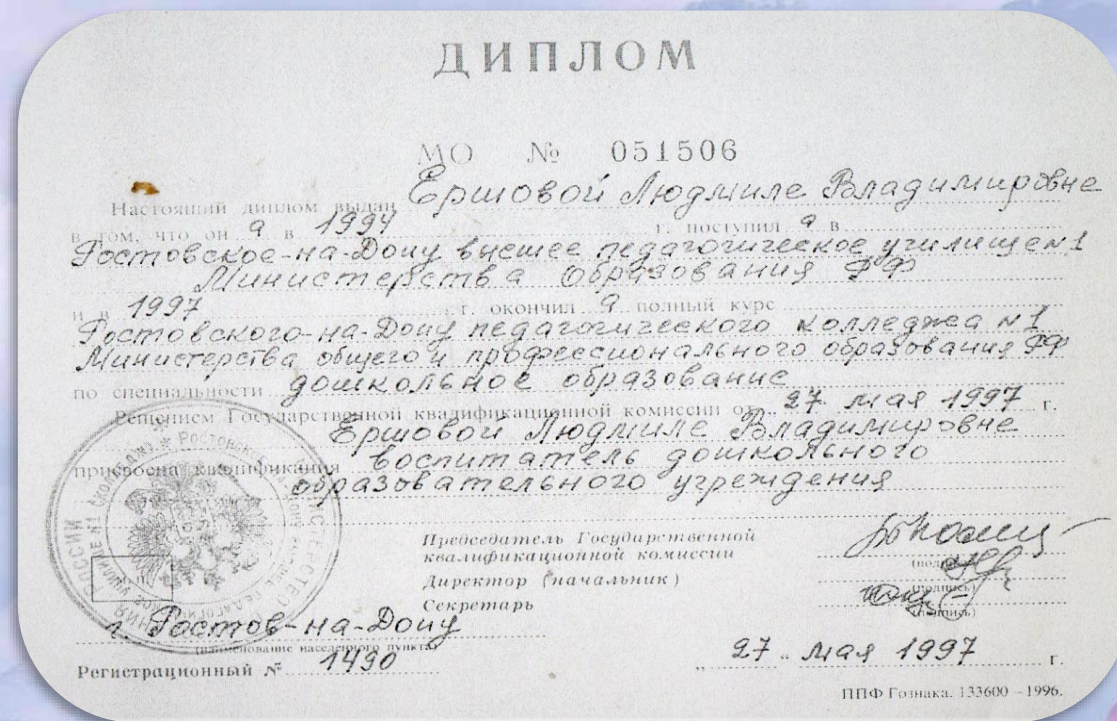 ДИПЛОМ
МО № 051506
Настоящий диплом выдан Ершовой Людмиле Владимировне
в том, что он а в 1994 г. поступил а в
Ростовское-на-Дону высшее педагогическое училище N1
Министерства образования РФ
и в 1997 г. окончил а полный курс
Ростовского-на-Дону педагогического колледжа N1
Министерства общего и профессионального образования РФ
по специальности дошкольное образование
Решением Государственной квалификационной комиссии от „27 мая 1997 г.
Ершовой Людмиле Владимировне
присвоена квалификация воспитатель дошкольного
образовательного учреждения
Председатель Государственной
квалификационной комиссии
(подпись)
Директор (начальник)
(подпись)
Секретарь
(подпись)
г. Ростов-на-Дону
(наименование населенного пункта)
Регистрационный № 1490
„27„ мая 1997 г.
ППФ Гознака. 133600 - 1996.